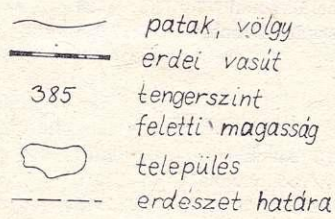 patak, völgy
erdei vasút
385 tengerszint
feletti magasság
település
erdészet határa